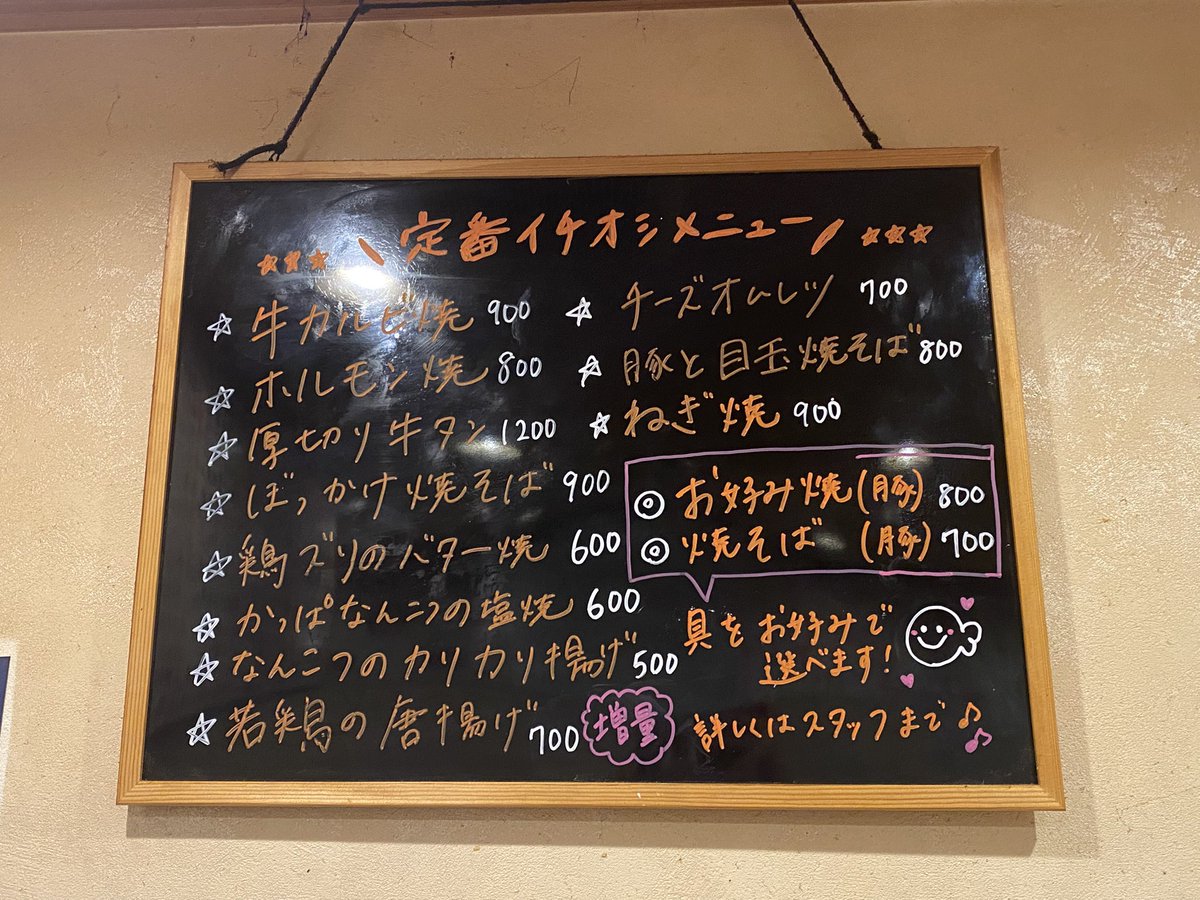 ☆☆☆ \ 定番イチオシメニュー / ☆☆☆
☆ 牛カルビ焼 900
☆ ホルモン焼 800
☆ 厚切り牛タン 1200
☆ ぼっかけ焼そば 900
☆ 鶏ズリのバター焼 600
☆ かっぱなんこつの塩焼 600
☆ なんこつのカリカリ揚げ 500
☆ 若鶏の唐揚げ 700 増量
☆ チーズオムレツ 700
☆ 豚と目玉焼そば 800
☆ ねぎ焼 900
◎ お好み焼(豚) 800
◎ 焼そば (豚) 700
具をお好みで
選べます!
詳しくはスタッフまで♪♫